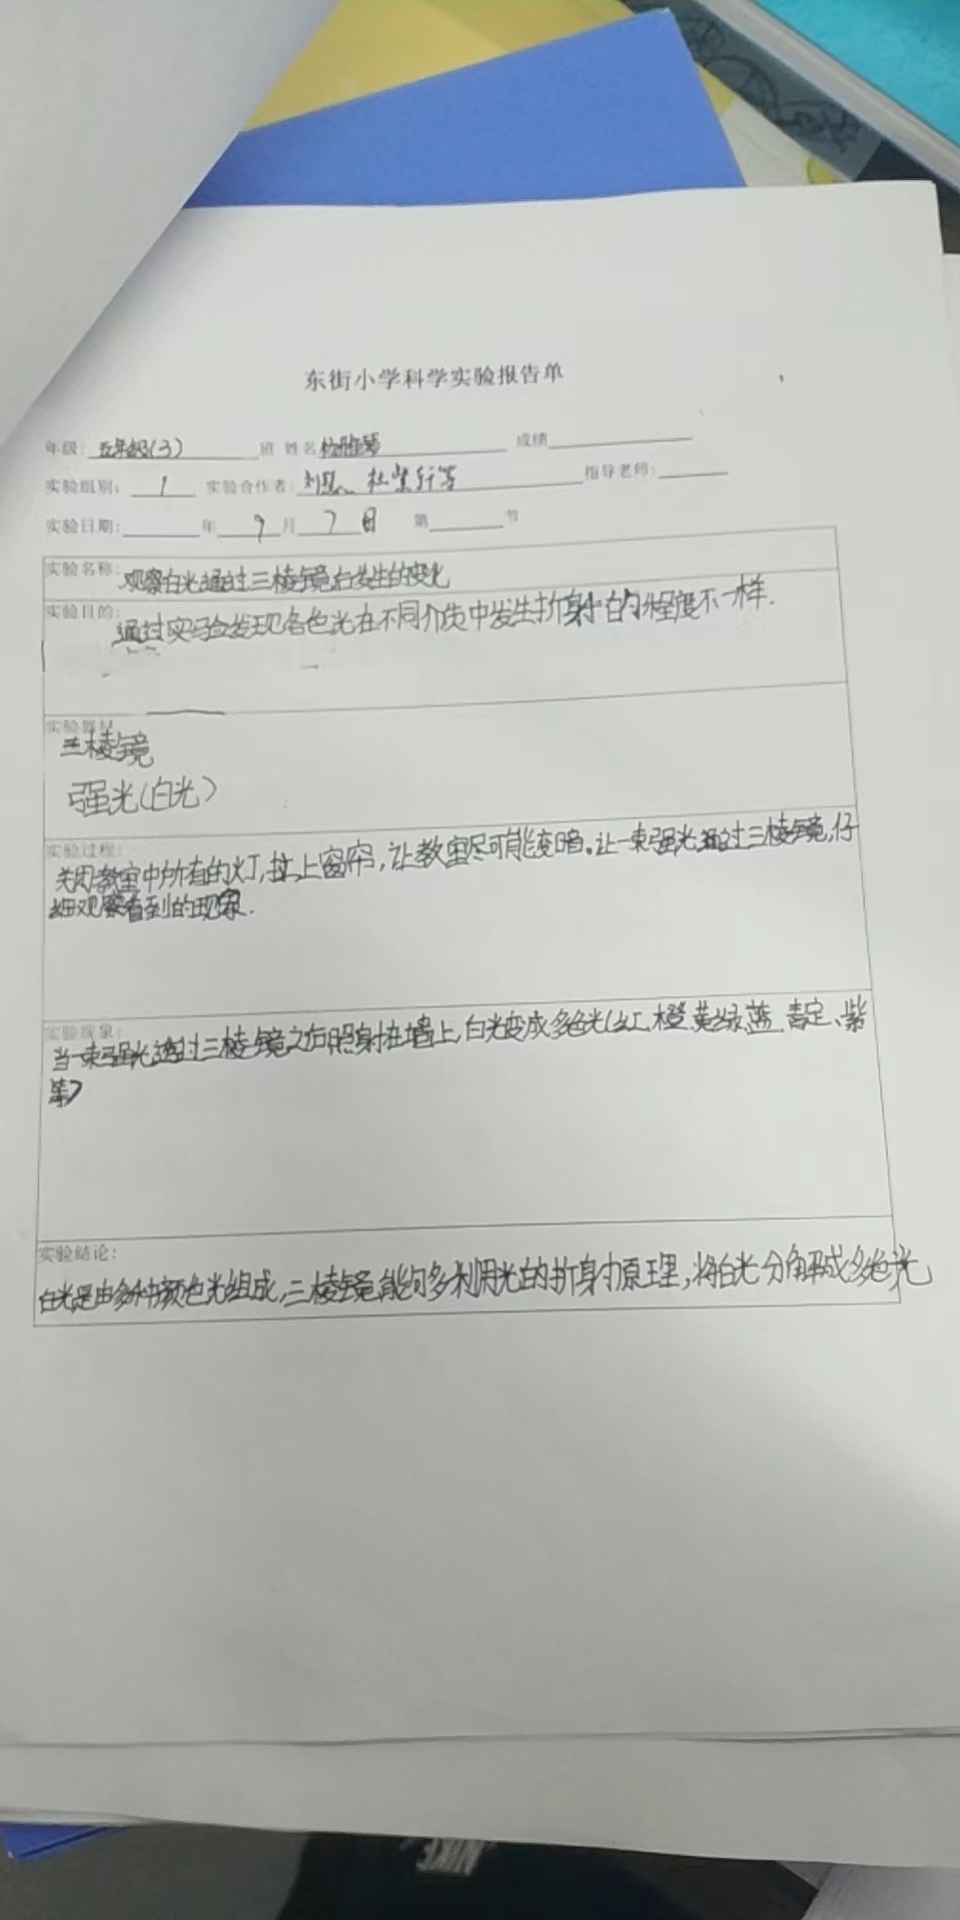 东街小学科学实验报告单
年级: 五年级(3) 班 姓名 成绩
实验组别: 1 实验合作者: 指导老师:
实验日期: 年 9 月 7 日 第 节
实验名称: 观察白光通过三棱镜后发生的变化
实验目的: 通过实验发现各色光在不同介质中发生折射的程度不一样.
实验器材
三棱镜
强光(白光)
实验过程:
关闭教室中所有的灯,拉上窗帘,让教室尽可能变暗。让一束强光通过三棱镜,仔
细观察看到的现象.
实验现象:
当一束强光透过三棱镜之后照射在墙上,白光变成多色光(红、橙、黄、绿、蓝、靛、紫
等)
实验结论:
白光是由多种颜色光组成,三棱镜能够利用光的折射原理,将白光分解成多色光
NIKE